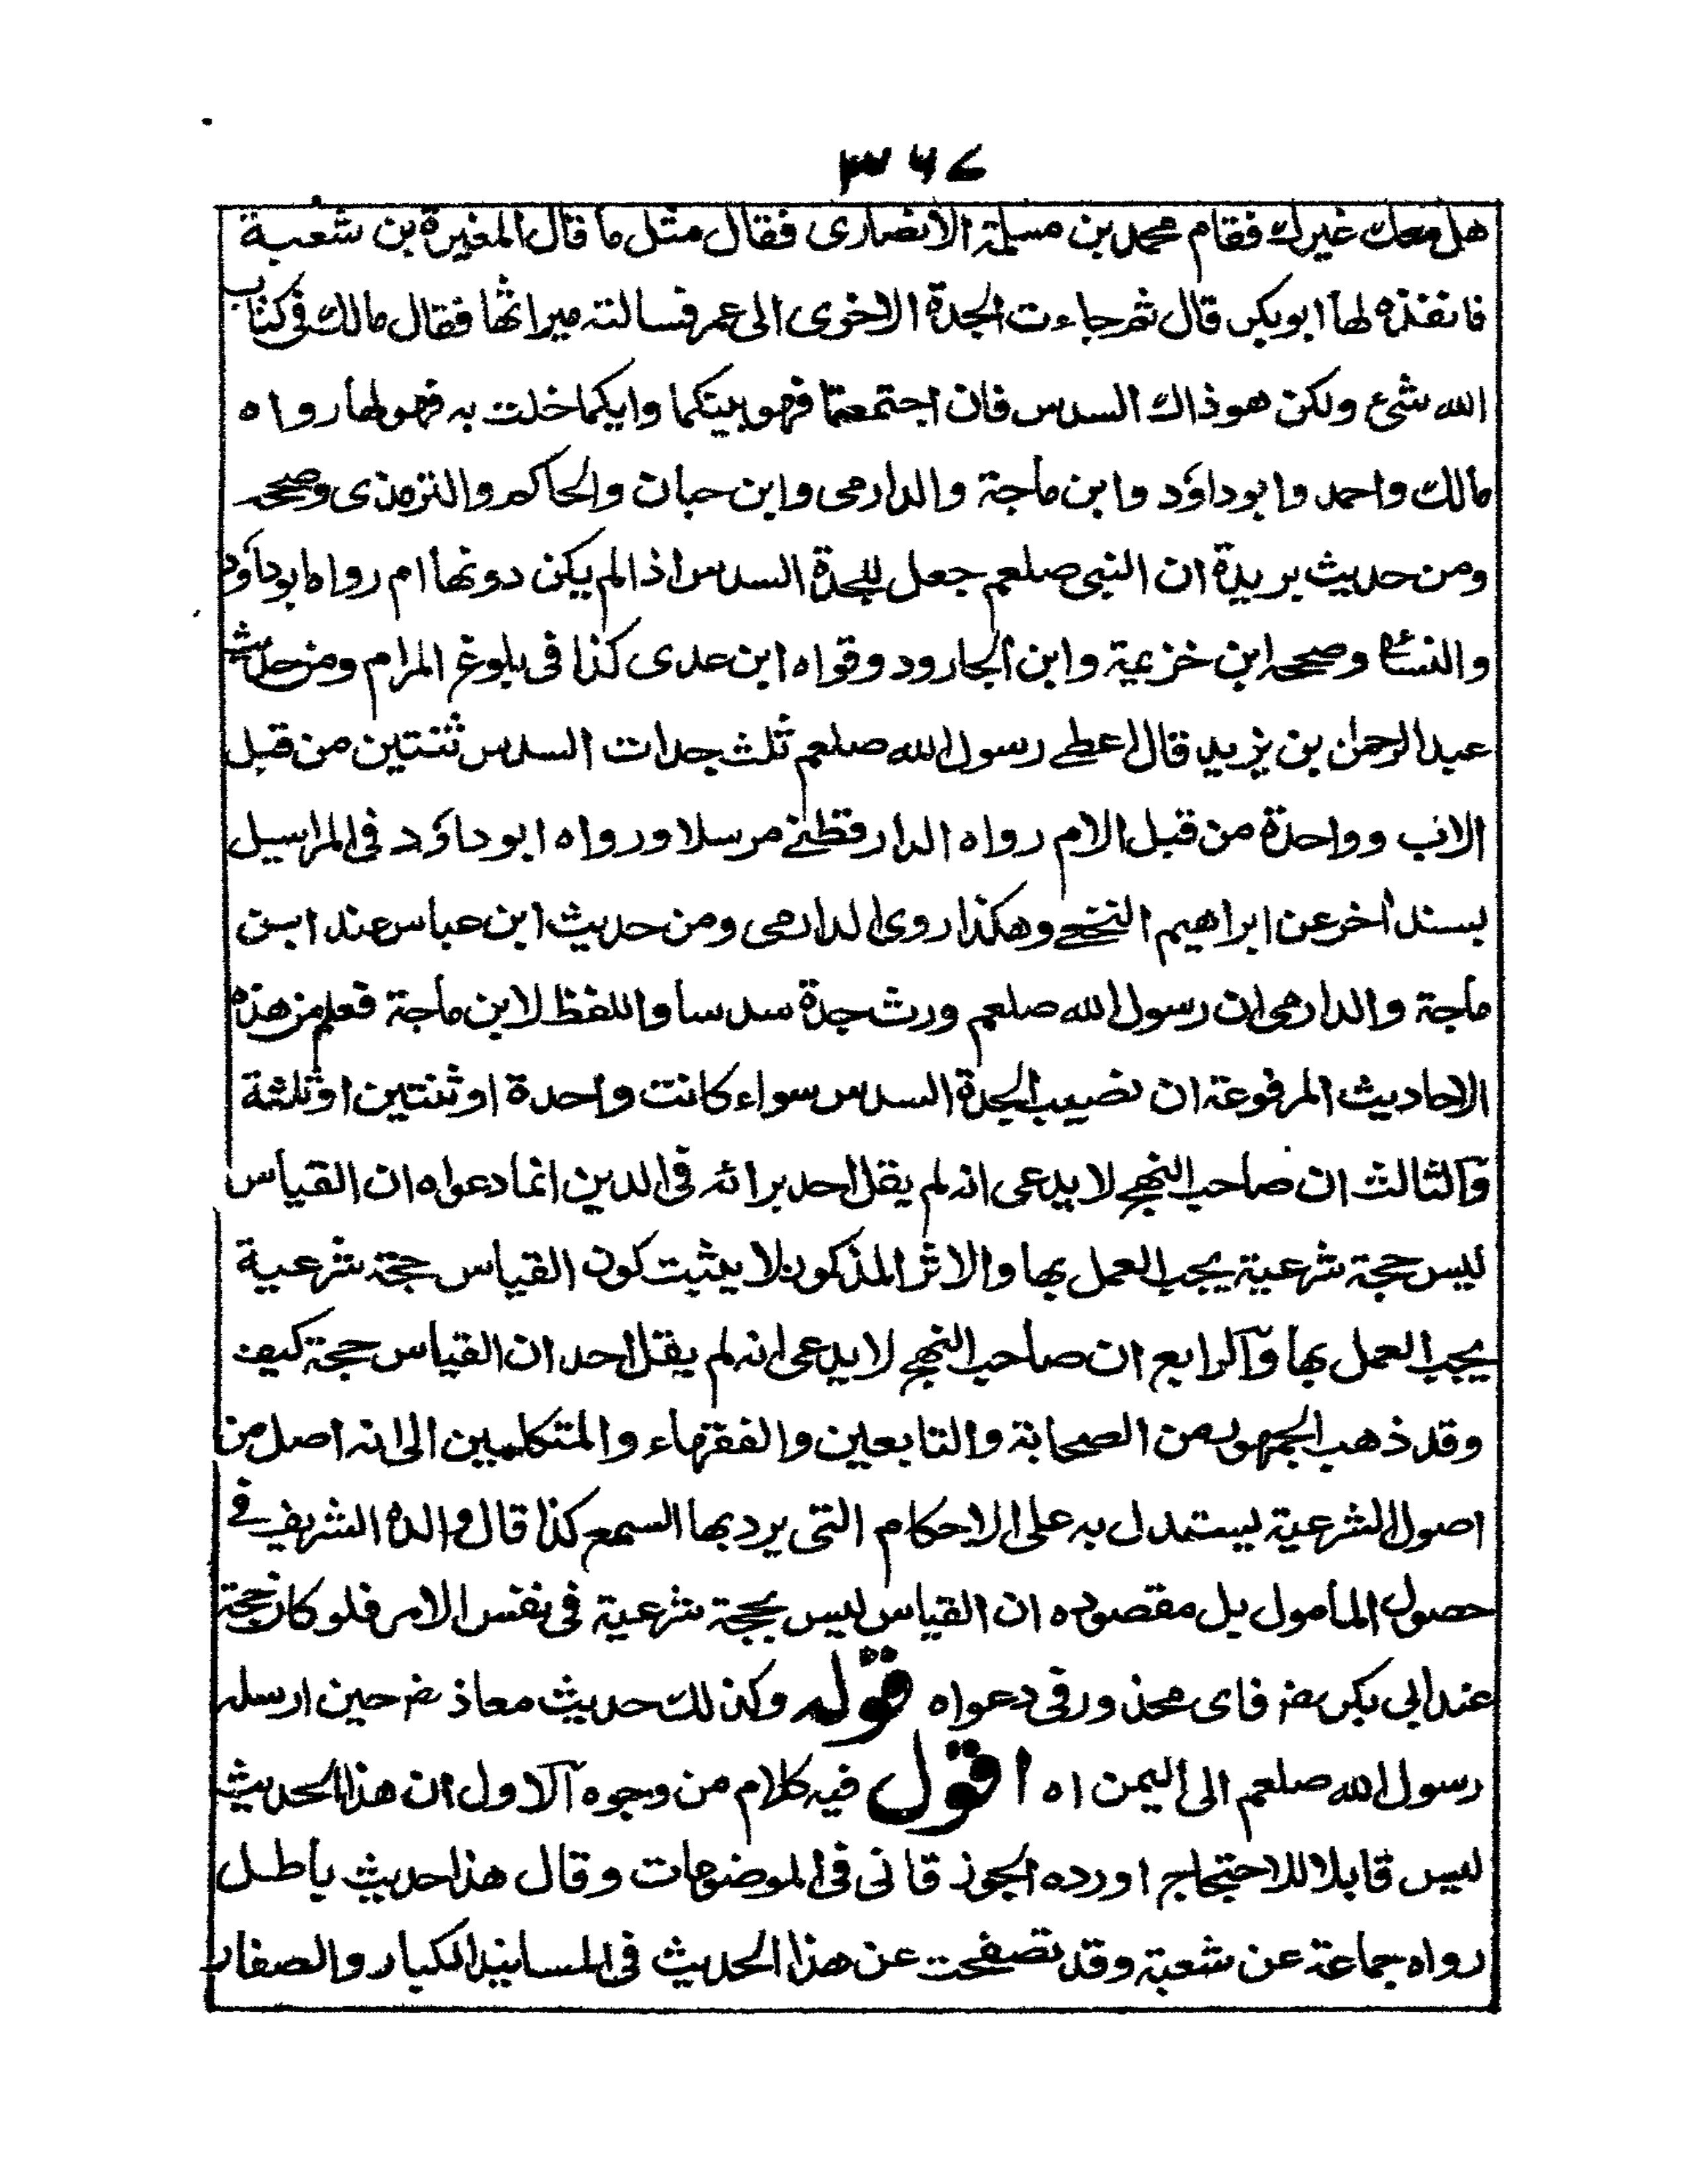 ٣٦٧
هل معك غيرك فقام محمد بن مسلمة الانصارى فقال مثل ما قال المغيرة بن شعبة
فانفذه لها ابو بكر قال ثم جاءت الجدة الاخرى الى عمر فسالته ميراثها فقال مالك فى كتاب
الله شئ ولكن هو ذاك السدس فان اجتمعتما فهو بينكما وايكما خلت به فهو لها رواه
مالك واحمد وابو داؤد وابن ماجة والدارمى وابن حبان والحاكم والترمذى وصححه
ومن حديث بريدة ان النبى صلعم جعل للجدة السدس اذا لم يكن دونها ام رواه ابو داؤد
والنسائى وصححه ابن خزيمة وابن الجارود وقواه ابن عدى كذا فى بلوغ المرام ومن حديث
عبد الرحمن بن يزيد قال اعطى رسول الله صلعم ثلث جدات السدس ثنتين من قبل
الاب وواحدة من قبل الام رواه الدارقطنى مرسلا ورواه ابو داؤد فى المراسيل
بسند اخر عن ابراهيم النخعى وهكذا روى الدارمى ومن حديث ابن عباس عند ابن
ماجة والدارمى ان رسول الله صلعم ورث جدة سدسا واللفظ لابن ماجة فعلم من هذه
الاحاديث المرفوعة ان نصيب الجدة السدس سواء كانت واحدة او ثنتين او ثلثة
وآلثالث ان صاحب النهج لا يدعى انه لم يقل احد برائه فى الدين انما دعواه ان القياس
ليس حجة شرعية يجب العمل بها والاثر المذكور لا يثبت كون القياس حجة شرعية
يجب العمل بها وآلرابع ان صاحب النهج لا يدعى انه لم يقل احد ان القياس حجة كيف
وقد ذهب الجمهور من الصحابة والتابعين والفقهاء والمتكلمين الى انه اصل من
اصول الشرعية يستدل به على الاحكام التى يرد بها السمع كذا قال والده الشريف فى
حصول المأمول بل مقصوده ان القياس ليس بحجة شرعية فى نفس الامر فلو كان حجة
عند ابى بكر رض فاى محذور فى دعواه قوله وكذلك حديث معاذ رض حين ارسله
رسول الله صلعم الى اليمن اه اقول فيه كلام من وجوه آلاول ان هذا الحديث
ليس قابلا للاحتجاج اورده الجوزقانى فى الموضوعات وقال هذا حديث باطل
رواه جماعة عن شعبة وقد تصفحت عن هذا الحديث فى المسانيد الكبار والصغار